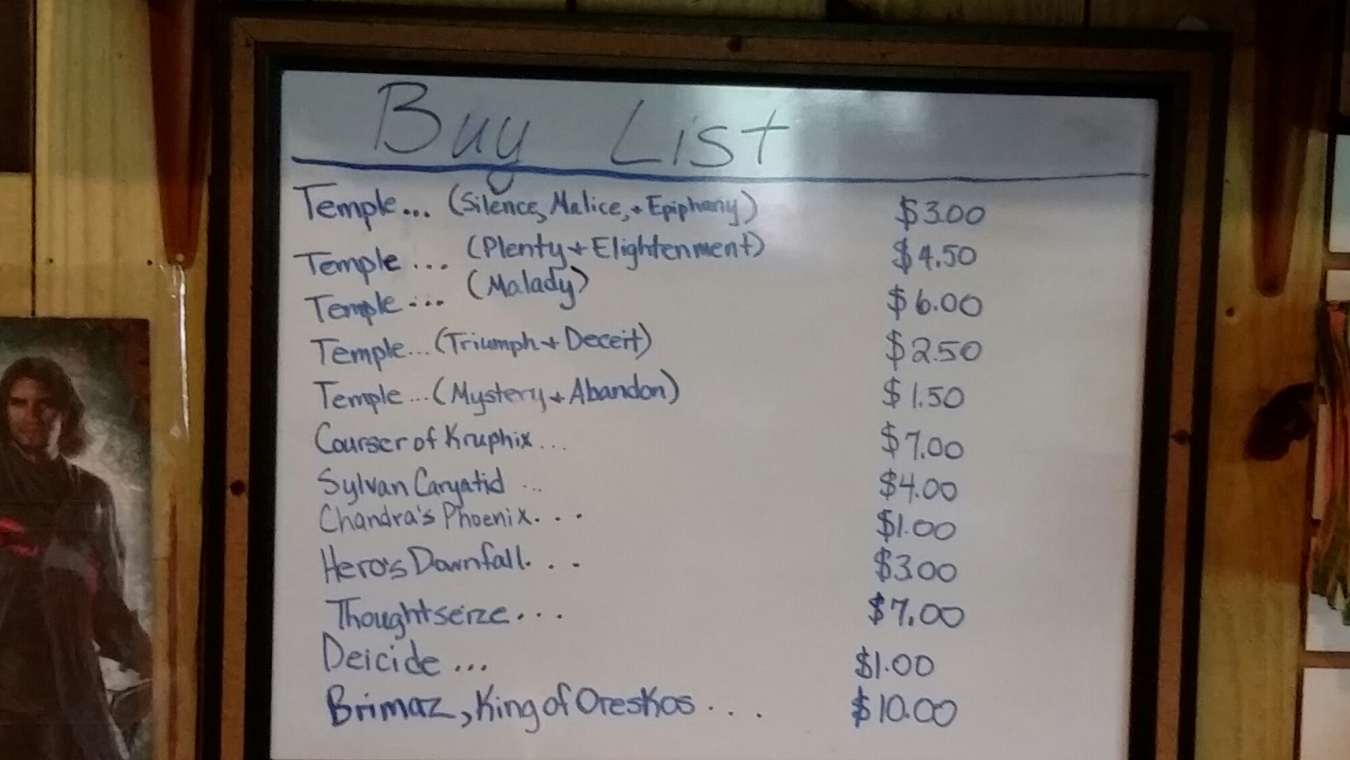 Buy List
Temple... (Silence, Malice, + Epiphany) $3.00
Temple ... (Plenty + Elightenment) $4.50
Temple ... (Malady) $6.00
Temple... (Triumph + Deceit) $2.50
Temple ... (Mystery + Abandon) $1.50
Courser of Kruphix... $7.00
Sylvan Caryatid ... $4.00
Chandra's Phoenix... $1.00
Hero's Downfall... $3.00
Thoughtseize... $7.00
Deicide ... $1.00
Brimaz, King of Oreskos ... $10.00